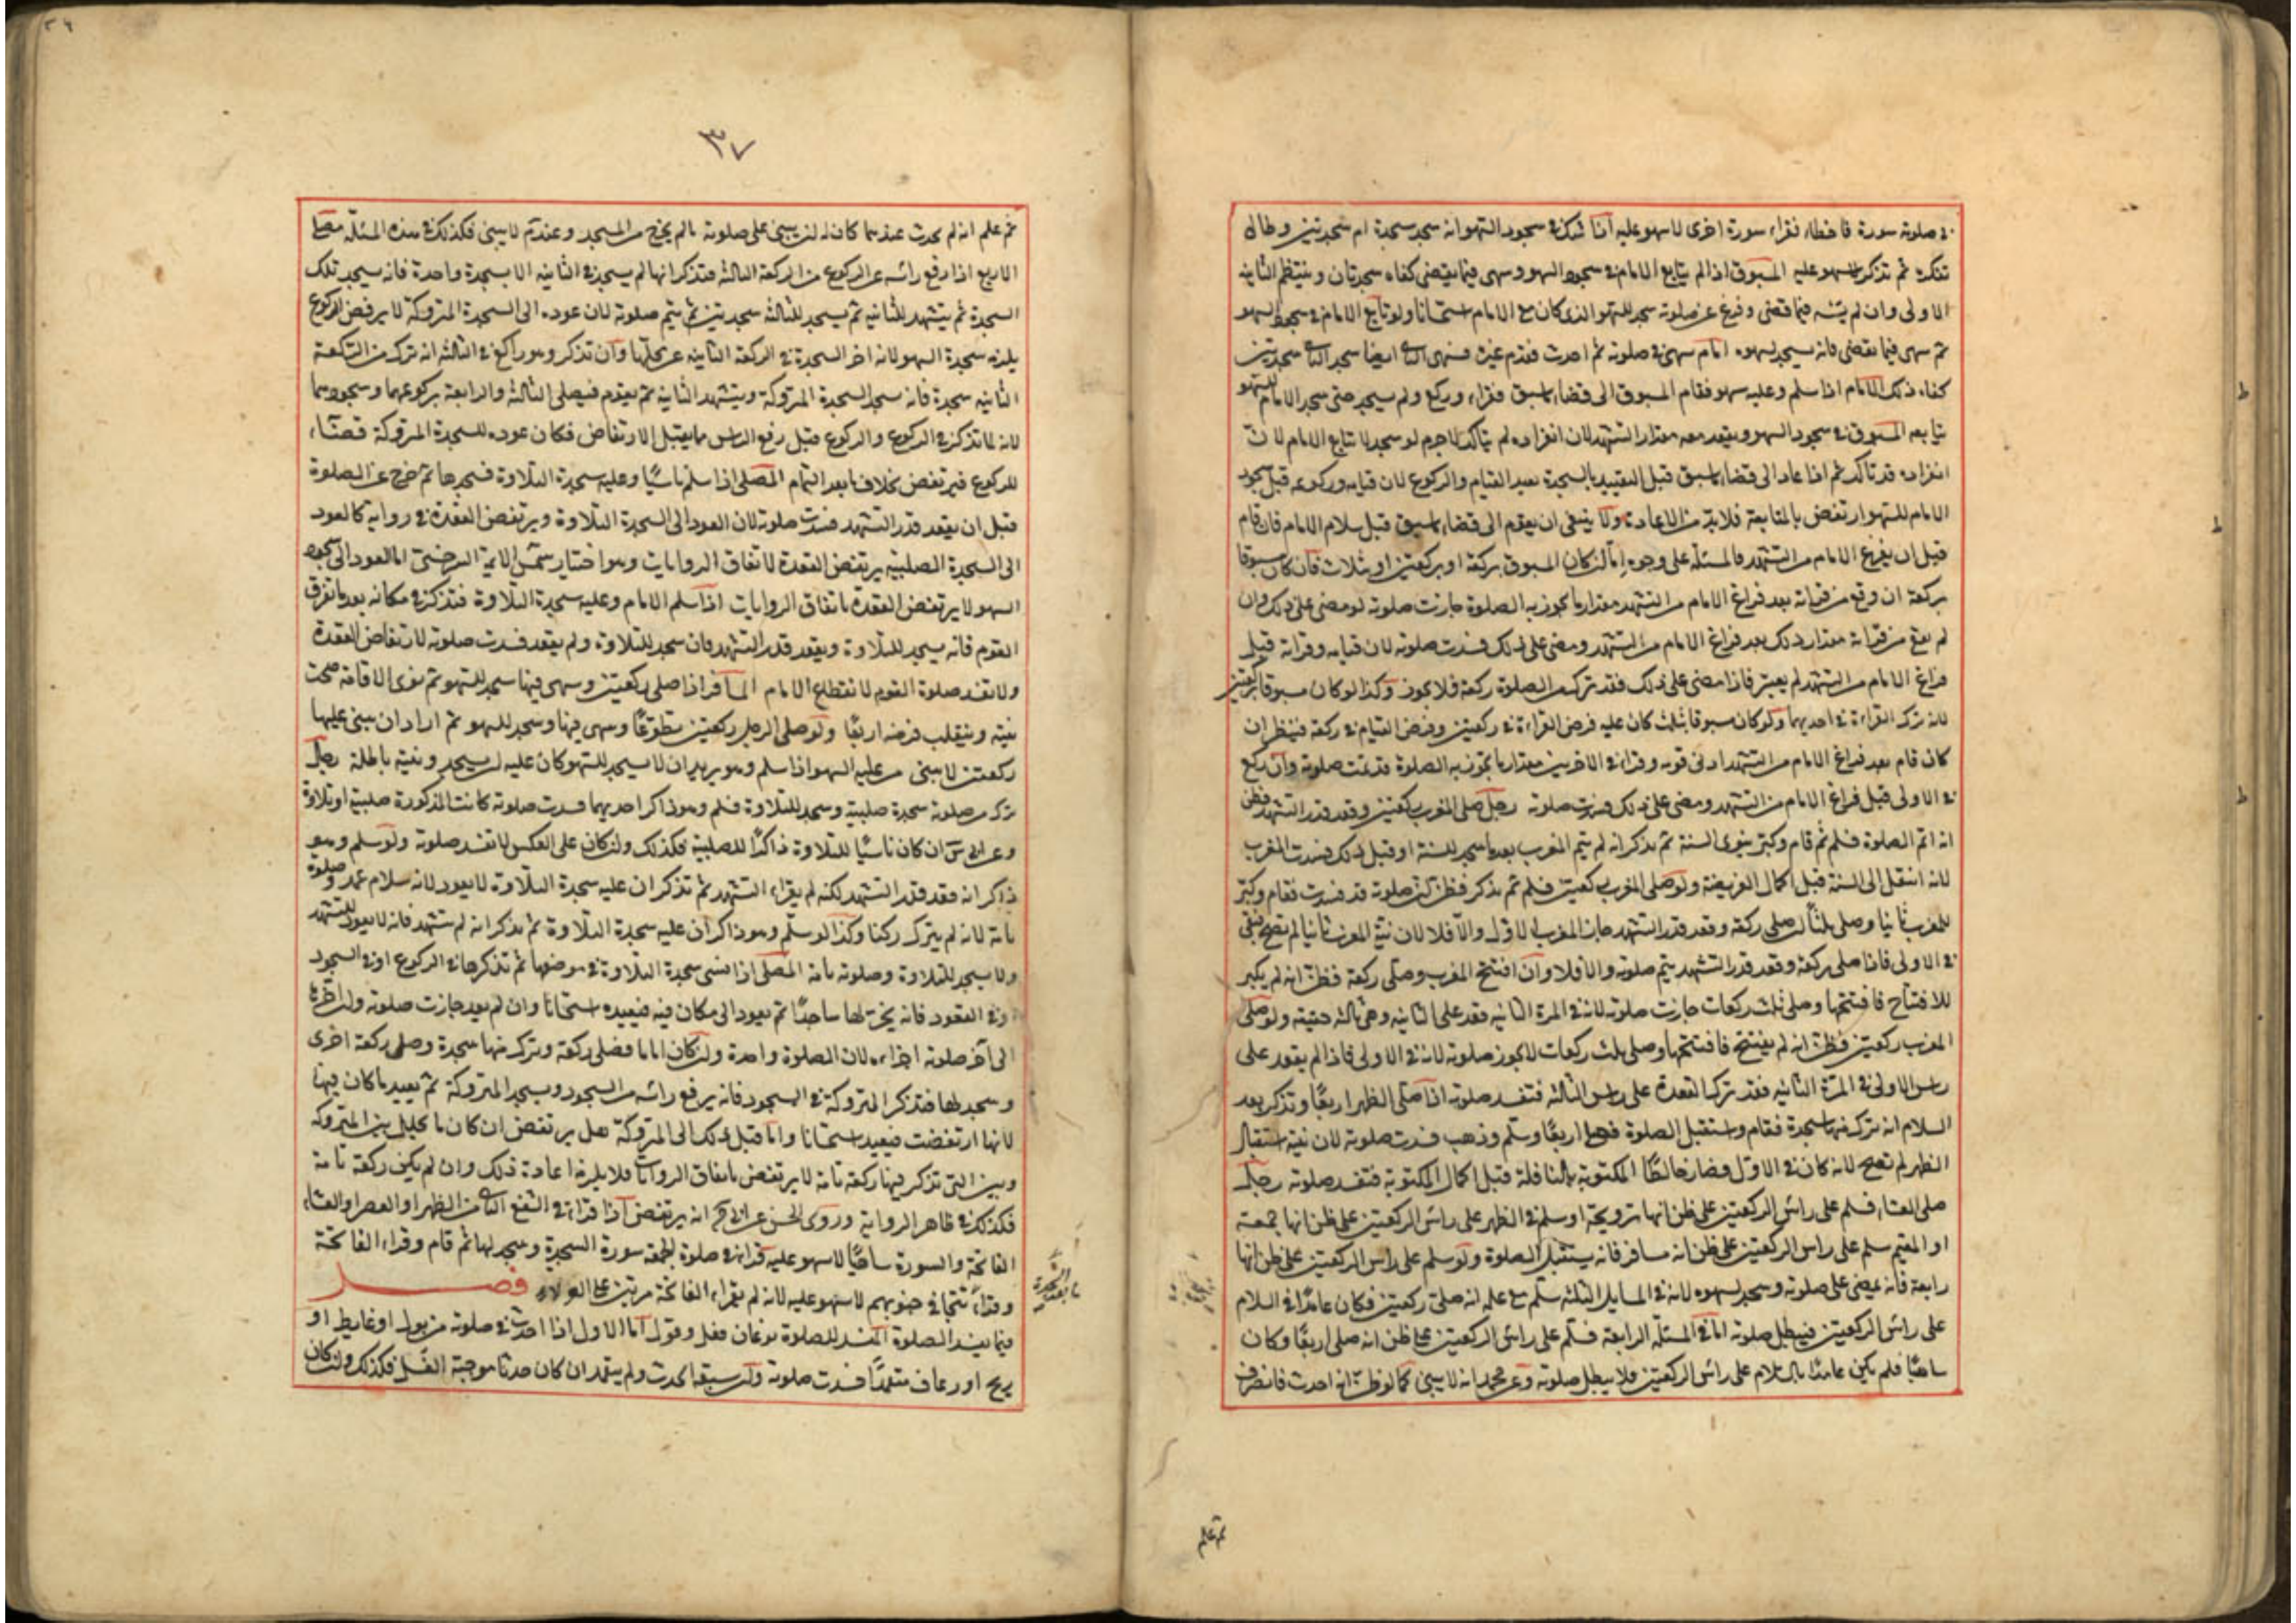 في صلوته سورة فاخطاء فقراء سورة اخرى لا سهو عليه اذا شك في سجود السهو انه سجد سجدة ام سجدتين وطال
تفكره ثم تذكر لا سهو عليه المسبوق اذا لم يتابع الامام في سجود السهو وسهى فيما يقضى كفاه سجدتان وينتظم الثانية
الاولى وان لم يسه فيما قضى وفرغ عن صلوته سجد للسهو الذي كان مع الامام استحسانا ولو تابع الامام في سجود السهو
ثم سهى فيما يقضى فانه يسجد لسهوه امام سهى في صلوته ثم احدث فقدم غيره فسهى الثاني ايضا سجد الثاني سجدتين
كفاه ذلك الامام اذا سلم وعليه سهو فقام المسبوق الى قضاء ما سبق فقراء وركع ولم يسجد حتى سجد الامام للسهو
يتابعه المسبوق في سجود السهو ويقعد معه مقدار التشهد لان انفراده لم يتاكد لا جرم لو سجد لا يتابع الامام لان
انفراده قد تاكد ثم اذا عاد الى قضاء ما سبق قبل التقييد بالسجدة يعيد القيام والركوع لان قيامه وركوعه قبل سجود
الامام للسهو ارتفض بالمتابعة فلا بد من الاعادة ولا ينبغي ان يقوم الى قضاء ما سبق قبل سلام الامام فان قام
قبل ان يفرغ الامام من التشهد فالمسئلة على وجوه اما ان كان المسبوق بركعة او بركعتين او بثلاث فان كان مسبوقا
بركعة ان وقع من قراته بعد فراغ الامام من التشهد مقدار ما يجوز به الصلوة جازت صلوته لو مضى على ذلك وان
لم يقع من قراته مقدار ذلك بعد فراغ الامام من التشهد ومضى على ذلك فسدت صلوته لان قيامه وقراته قبل
فراغ الامام من التشهد لم يعتبر فاذا مضى على ذلك فقد ترك من الصلوة ركعة فلا يجوز وكذا لو كان مسبوقا بركعتين
لانه ترك القراءة في احديهما ولو كان مسبوقا بثلث كان عليه فرض القراءة في ركعتين وفرض القيام في ركعة فينظر ان
كان قام بعد فراغ الامام من التشهد ادنى قومة وقراء في الاخريين مقدار ما يجوز به الصلوة قد تمت صلوته وان ركع
في الاولى قبل فراغ الامام من التشهد ومضى على ذلك فسدت صلوته رجل صلى المغرب ركعتين وقعد قدر التشهد فظن
انه اتم الصلوة فسلم ثم قام وكبر ينوى السنة ثم تذكر انه لم يتم المغرب بعد ما سجد للسنة او قبل ذلك فسدت المغرب
لانه انتقل الى السنة قبل اكمال الفريضة ولو صلى المغرب ركعتين فسلم ثم تذكر فظن ان صلوته قد فسدت فقام وكبر
للمغرب ثانيا وصلى ثلثا ان صلى ركعة وقعد قدر التشهد جازت المغرب الاول والا فلا لان نية المغرب ثانيا لم تصح فبقى
في الاولى فاذا صلى ركعة وقعد قدر التشهد يتم صلوته والا فلا وان افتتح المغرب وصلى ركعة فظن انه لم يكبر
للافتتاح فافتتحها وصلى ثلث ركعات جازت صلوته لانه في المرة الثانية قعد على الثانية وهي ثالثة حقيقة ولو صلى
المغرب ركعتين فظن انه لم يفتتح فافتتحها وصلى ثلث ركعات لا يجوز صلوته لانه في الاولى فاذا لم يقعد على
راس الاولى في المرة الثانية فقد ترك القعدة على راس الثالثة فتفسد صلوته اذا صلى الظهر اربعا وتذكر بعد
السلام انه ترك منها سجدة فقام واستقبل الصلوة فصلى اربعا وسلم وذهب فسدت صلوته لان نية استقبال
الظهر لم تصح لانه كان في الاول فصار خالطا المكتوبة بالنافلة قبل اكمال المكتوبة فتفسد صلوته رجل
صلى العشاء فسلم على راس الركعتين على ظن انها ترويحة او سلم في الظهر على راس الركعتين على ظن انها جمعة
او المقيم سلم على راس الركعتين على ظن انه مسافر فانه يستقبل الصلوة ولو سلم على راس الركعتين على ظن انها
رابعة فانه يمضى على صلوته وسجد لسهوه لانه في المسايل الثلثة سلم مع علمه انه صلى ركعتين فكان عامدا في السلام
على راس الركعتين فيبطل صلوته اما في المسئلة الرابعة فسلم على راس الركعتين على ظن انه صلى اربعا وكان
ساهيا فلم يكن عامدا بالسلام على راس الركعتين فلا يبطل صلوته وعن محمد انه لا يبنى كما لو ظن انه احدث فانصرف
ثم علم
٣٧
ثم علم انه لم يحدث عندهما كان له ان يبنى على صلوته ما لم يخرج من المسجد وعنده لا يبنى فكذلك في هذه المسئلة مصلى
الاربع اذا رفع راسه من الركوع من الركعة الثالثة فتذكر انها لم يسجد في الثانية الا سجدة واحدة فانه يسجد تلك
السجدة ثم يتشهد للثانية ثم يسجد للثالثة سجدتين ثم يتم صلوته لان عوده الى السجدة المتروكة لا يرفض الركوع
يلزمه سجدة السهو لانه اخر السجدة في الركعة الثانية عن محلها وان تذكر وهو راكع في الثالثة انه ترك من الركعة
الثانية سجدة فانه سجد السجدة المتروكة ويتشهد للثانية ثم يقوم فيصلى الثالثة والرابعة بركوعهما وسجودهما
لانه لما تذكر في الركوع والركوع قبل رفع الراس مما يقبل الارتفاض فكان عوده للسجدة المتروكة قصدا
للركوع فيرتفض بخلاف ما بعد التمام المصلى اذا سلم ناسيا وعليه سجدة التلاوة فسجدها ثم خرج عن الصلوة
قبل ان يقعد قدر التشهد فسدت صلوته لان العود الى السجدة التلاوة ويرتفض القعدة في رواية كالعود
الى السجدة الصلبية يرتفض القعدة لاتفاق الروايات وهو اختيار شمس الايمة السرخسي اما العود الى سجود
السهو لا يرتفض القعدة باتفاق الروايات اذا سلم الامام وعليه سجدة التلاوة فتذكر في مكانه بعد ما تفرق
القوم فانه يسجد للتلاوة ويقعد قدر التشهد فان سجد للتلاوة ولم يقعد فسدت صلوته لارتفاض القعدة
ولا تفسد صلوة القوم لانقطاع الامام المسافر اذا صلى ركعتين وسهى فيها سجد للسهو ثم نوى الاقامة صحت
نيته وينقلب فرضه اربعا ولو صلى الرجل ركعتين تطوعا وسهى فيها وسجد للسهو ثم اراد ان يبنى عليها
ركعتين لا يبنى من عليه السهو اذا سلم وهو يريد ان لا يسجد للسهو كان عليه ان يسجد ونيته باطلة رجل
ترك من صلوته سجدة صلبية وسجد للتلاوة فسلم وهو ذاكر احديهما فسدت صلوته كانت المذكورة صلبية او تلاوة
وعن ان كان ناسيا للتلاوة ذاكرا للصلبية فكذلك وان كان على العكس لا تفسد صلوته ولو سلم وهو
ذاكر انه قعد قدر التشهد لكنه لم يقراء التشهد ثم تذكر ان عليه سجدة التلاوة لا يعود لانه سلام عمد وصلوته
تامة لانه لم يترك ركنا وكذا لو سلم وهو ذاكر ان عليه سجدة التلاوة ثم تذكر انه لم يتشهد فانه لا يعود للتشهد
ولا يسجد للتلاوة وصلوته تامة المصلى اذا نسى سجدة التلاوة في موضعها ثم تذكرها في الركوع او في السجود
او في القعود فانه يخر لها ساجدا ثم يعود الى مكان فيه فيعيده استحسانا وان لم يعد جازت صلوته وان اخرها
الى آخر صلوته اجزاءه لان الصلوة واحدة وان كان اماما فصلى ركعة وترك منها سجدة وصلى ركعة اخرى
وسجد لها فتذكر المتروكة في السجود فانه يرفع راسه من السجود ويسجد المتروكة ثم يعيد ما كان فيها
لانها ارتفضت فيعيد استحسانا واما قبل ذلك الى المتروكة هل يرتفض ان كان ما تخلل بين المتروكة
وبين التي تذكر فيها ركعة تامة لا يرتفض باتفاق الروايات فلا يلزمه اعادة ذلك وان لم يكن ركعة تامة
فكذلك في ظاهر الرواية وروى الحسن عن انه يرتفض اذا قراء في الشفع الثاني من الظهر او العصر او العشاء
الفاتحة والسورة ساهيا لا سهو عليه قراء في صلوة الجمعة سورة السجدة وسجد لها ثم قام وقراء الفاتحة
وقراء تتجافى جنوبهم لا سهو عليه لانه لم يقراء الفاتحة مرتين على الولاء فصل
فيما يفسد الصلوة المفسد للصلوة نوعان فعل وقول اما الاول اذا احدث في صلوته من بول او غايط او
ريح او رعاف متعمدا فسدت صلوته وان سبقه الحدث ولم يتعمد ان كان حدثا موجبة الغسل فكذلك وان كان